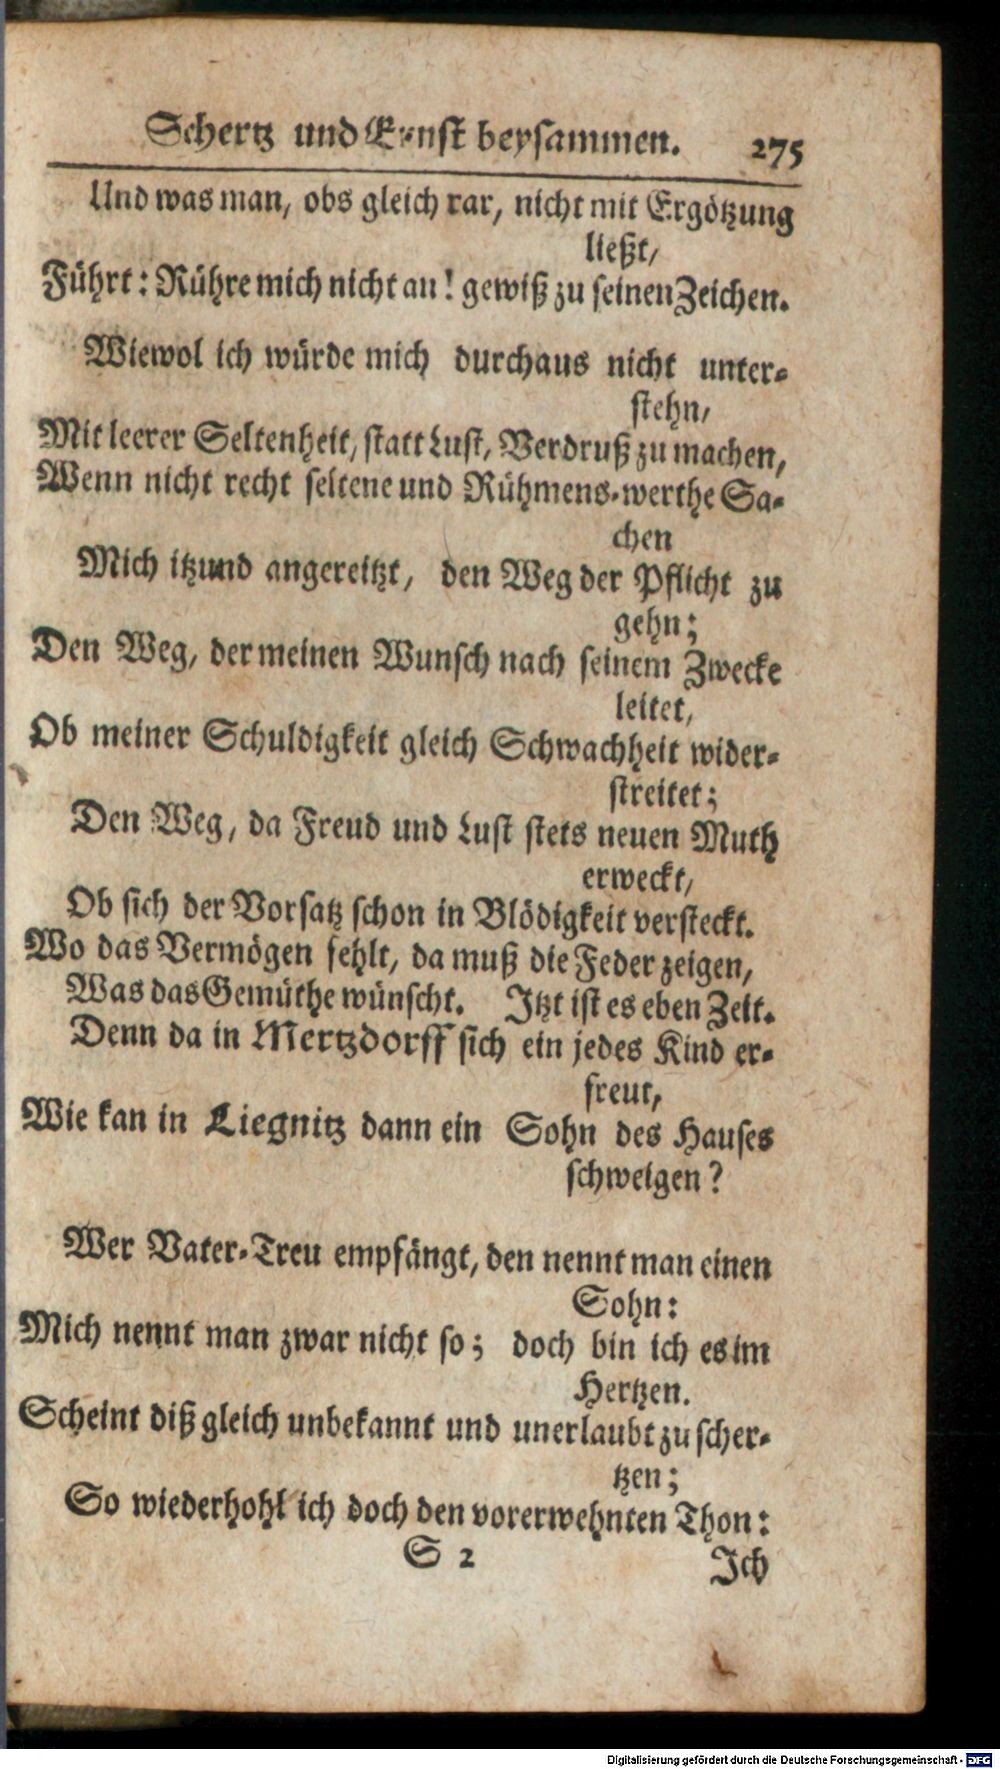 Schertz und Ernst beysammen. 275
Und was man, obs gleich rar, nicht mit Ergötzung
ließt,
Führt: Rühre mich nicht an! gewiß zu seinen Zeichen.
Wiewol ich würde mich durchaus nicht unter-
stehn,
Mit leerer Seltenheit, statt Lust, Verdruß zu machen,
Wenn nicht recht seltene und Rühmens-werthe Sa-
chen
Mich itzund angereitzt, den Weg der Pflicht zu
gehn;
Den Weg, der meinen Wunsch nach seinem Zwecke
leitet,
Ob meiner Schuldigkeit gleich Schwachheit wider-
streitet;
Den Weg, da Freud und Lust stets neuen Muth
erweckt,
Ob sich der Vorsatz schon in Blödigkeit versteckt.
Wo das Vermögen fehlt, da muß die Feder zeigen,
Was das Gemüthe wünscht. Itzt ist es eben Zeit.
Denn da in Mertzdorff sich ein jedes Kind er-
freut,
Wie kan in Liegnitz dann ein Sohn des Hauses
schweigen?
Wer Vater-Treu empfängt, den nennt man einen
Sohn:
Mich nennt man zwar nicht so; doch bin ich es im
Hertzen.
Scheint diß gleich unbekannt und unerlaubt zu scher-
tzen;
So wiederhohl ich doch den vorerwehnten Thon:
S 2 Ich
Digitalisierung gefördert durch die Deutsche Forschungsgemeinschaft - DFG